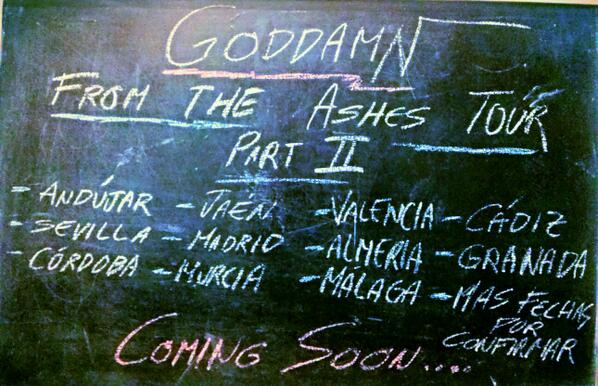 GODDAMN
FROM THE ASHES TOUR
PART II
- ANDÚJAR - JAÉN - VALENCIA - CÁDIZ
- SEVILLA - MADRID - ALMERÍA - GRANADA
- CÓRDOBA - MURCIA - MÁLAGA - MAS FECHAS
POR
CONFIRMAR
COMING SOON.....